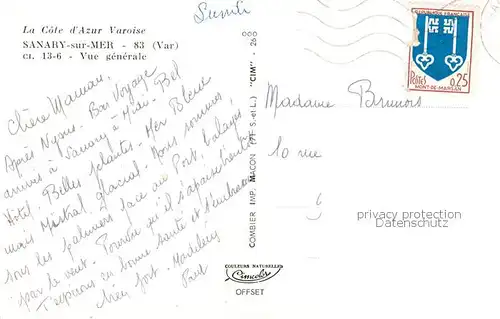 La Côte d'Azur Varoise
SANARY-sur-MER - 83 (Var)
Cl. 13-6 - Vue générale
Chère Maman,
Après Nyons. Bon Voyage
arrivés à Sanary à Midi. Bel
Hôtel. Belles plantes. Mer Bleue
mais Mistral glacial. Nous sommes
sous les palmiers face au Port, balayés
par le vent. Pourvu qu'il s'apaise
J'espérons en bonne santé et t'embrassons
bien fort.
COMBIER IMP. MACON (71 S.-et-L.) "CIM" - 268
COULEURS NATURELLES
Cimcolor
OFFSET
REPUBLIQUE FRANÇAISE
POSTES 0,25
MONT-DE-MARSAN
Madame
10 rue
privacy protection
Datenschutz